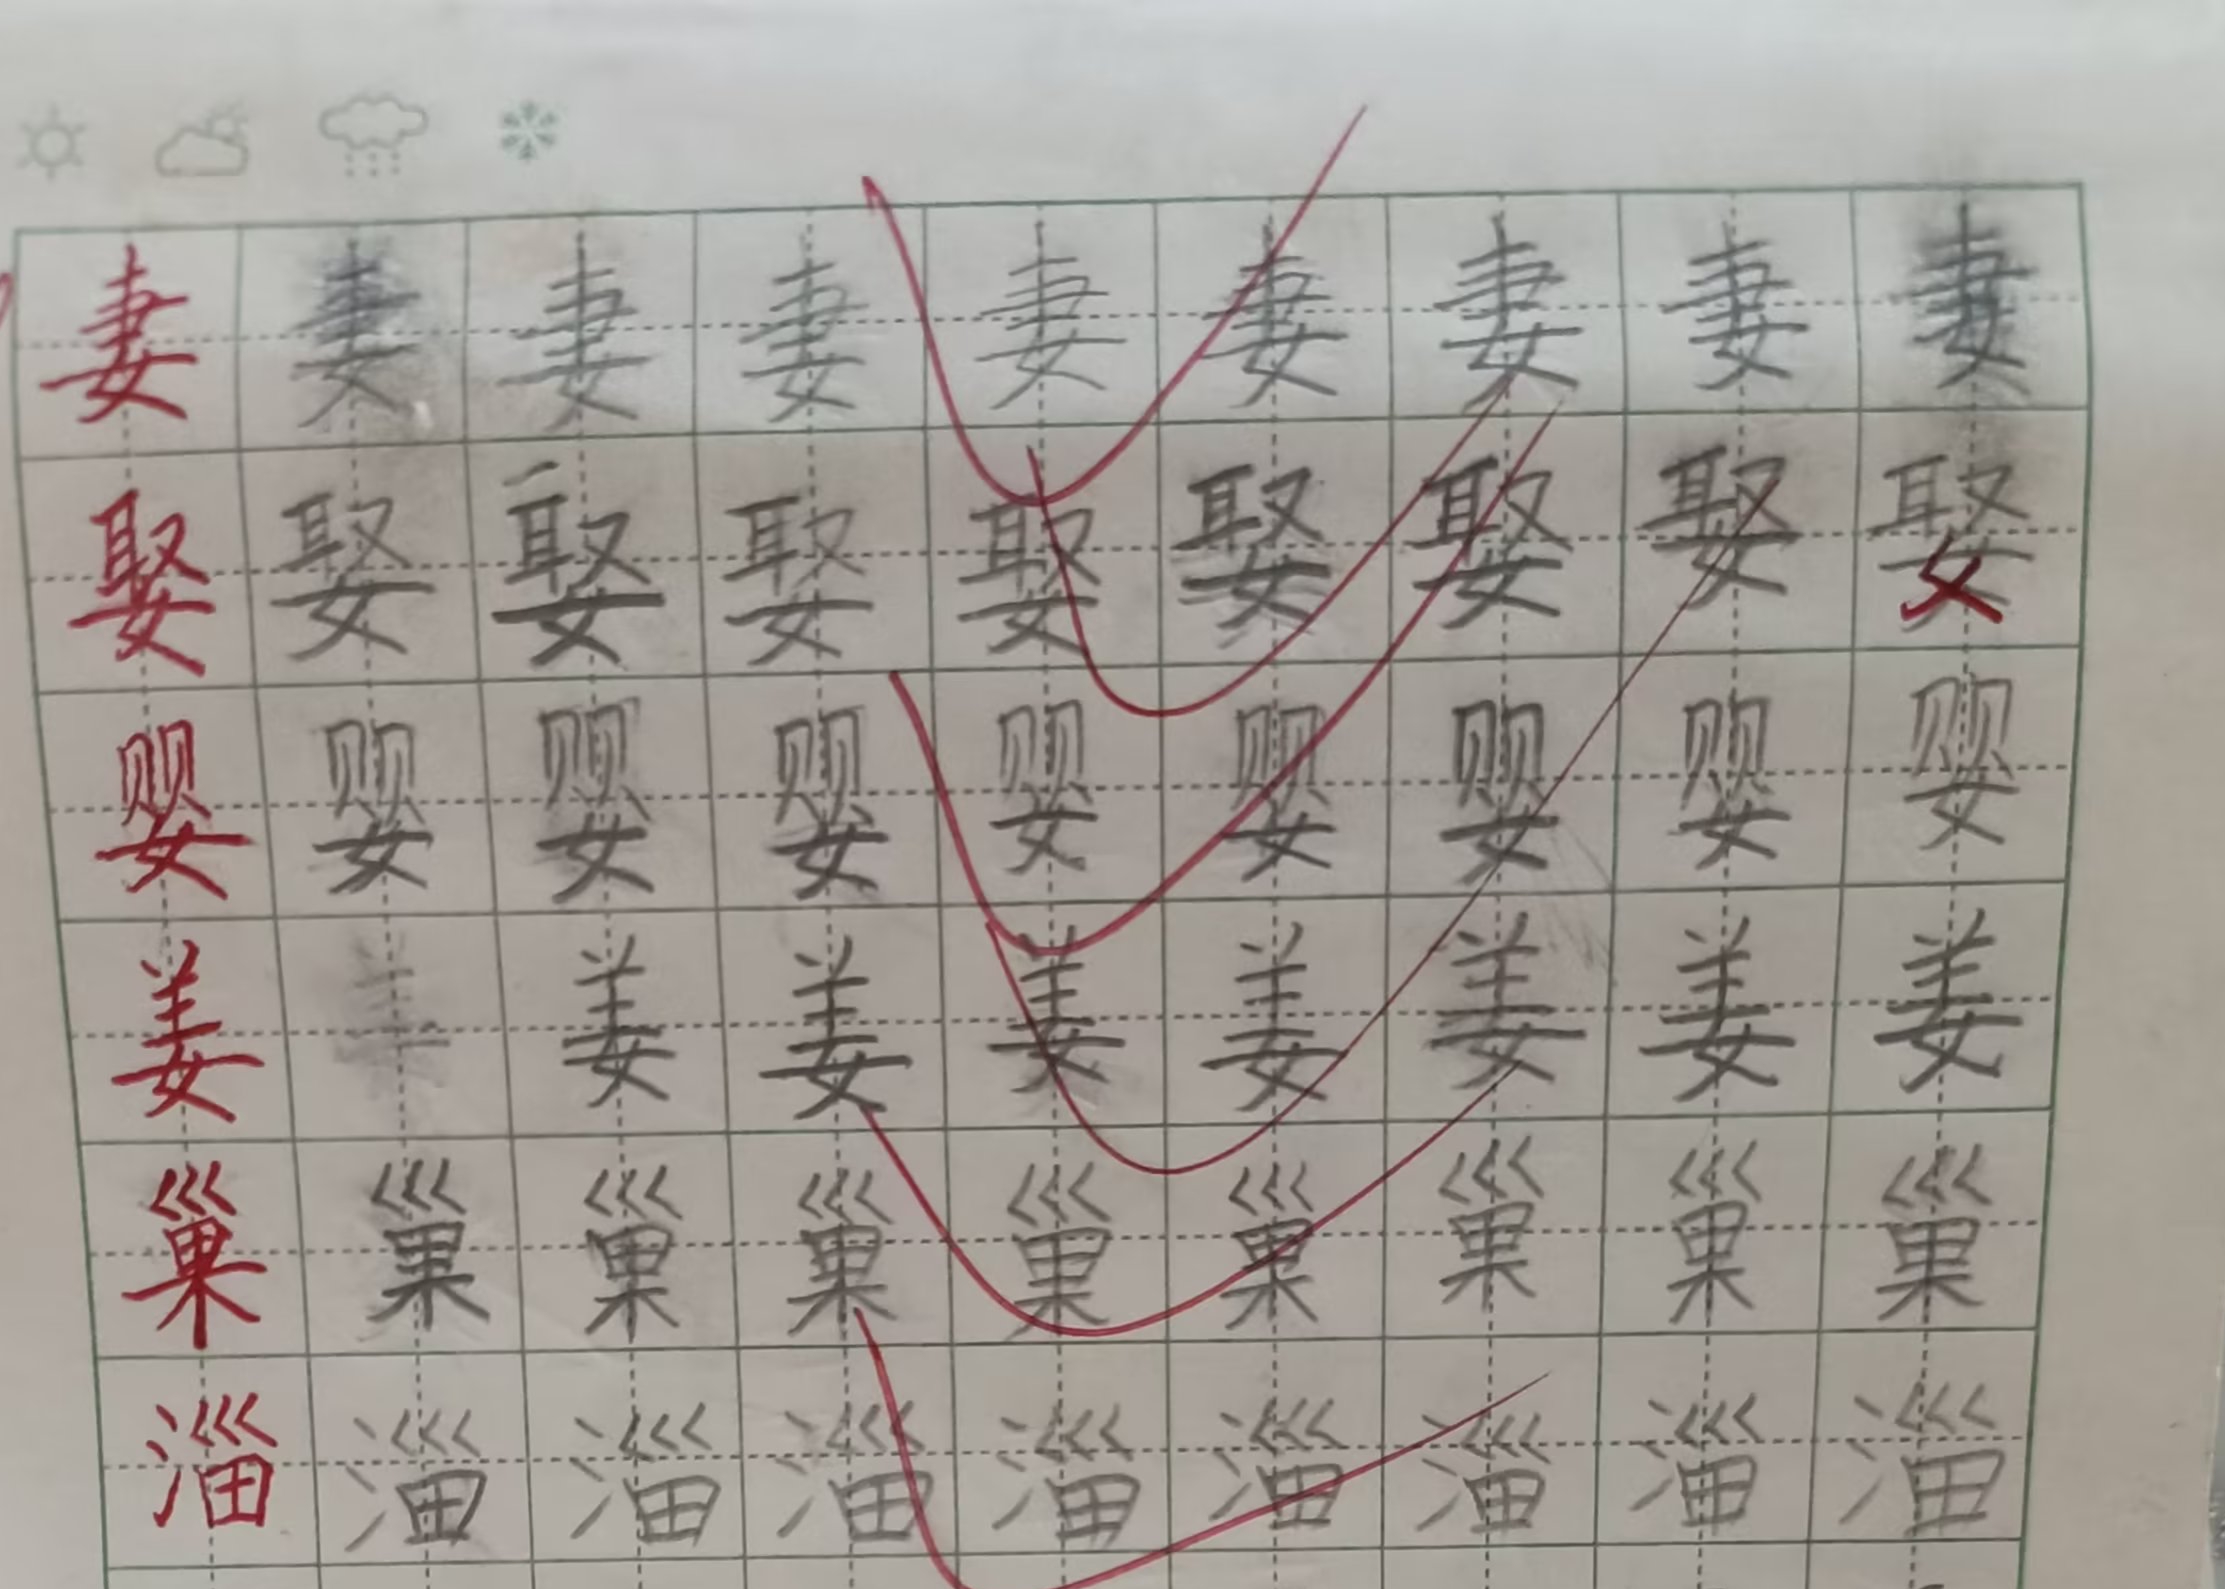 妻妻妻妻妻妻妻妻妻
娶娶娶娶娶娶娶娶娶
婴婴婴婴婴婴婴婴婴
姜姜姜姜姜姜姜姜
巢巢巢巢巢巢巢巢巢
淄淄淄淄淄淄淄淄淄